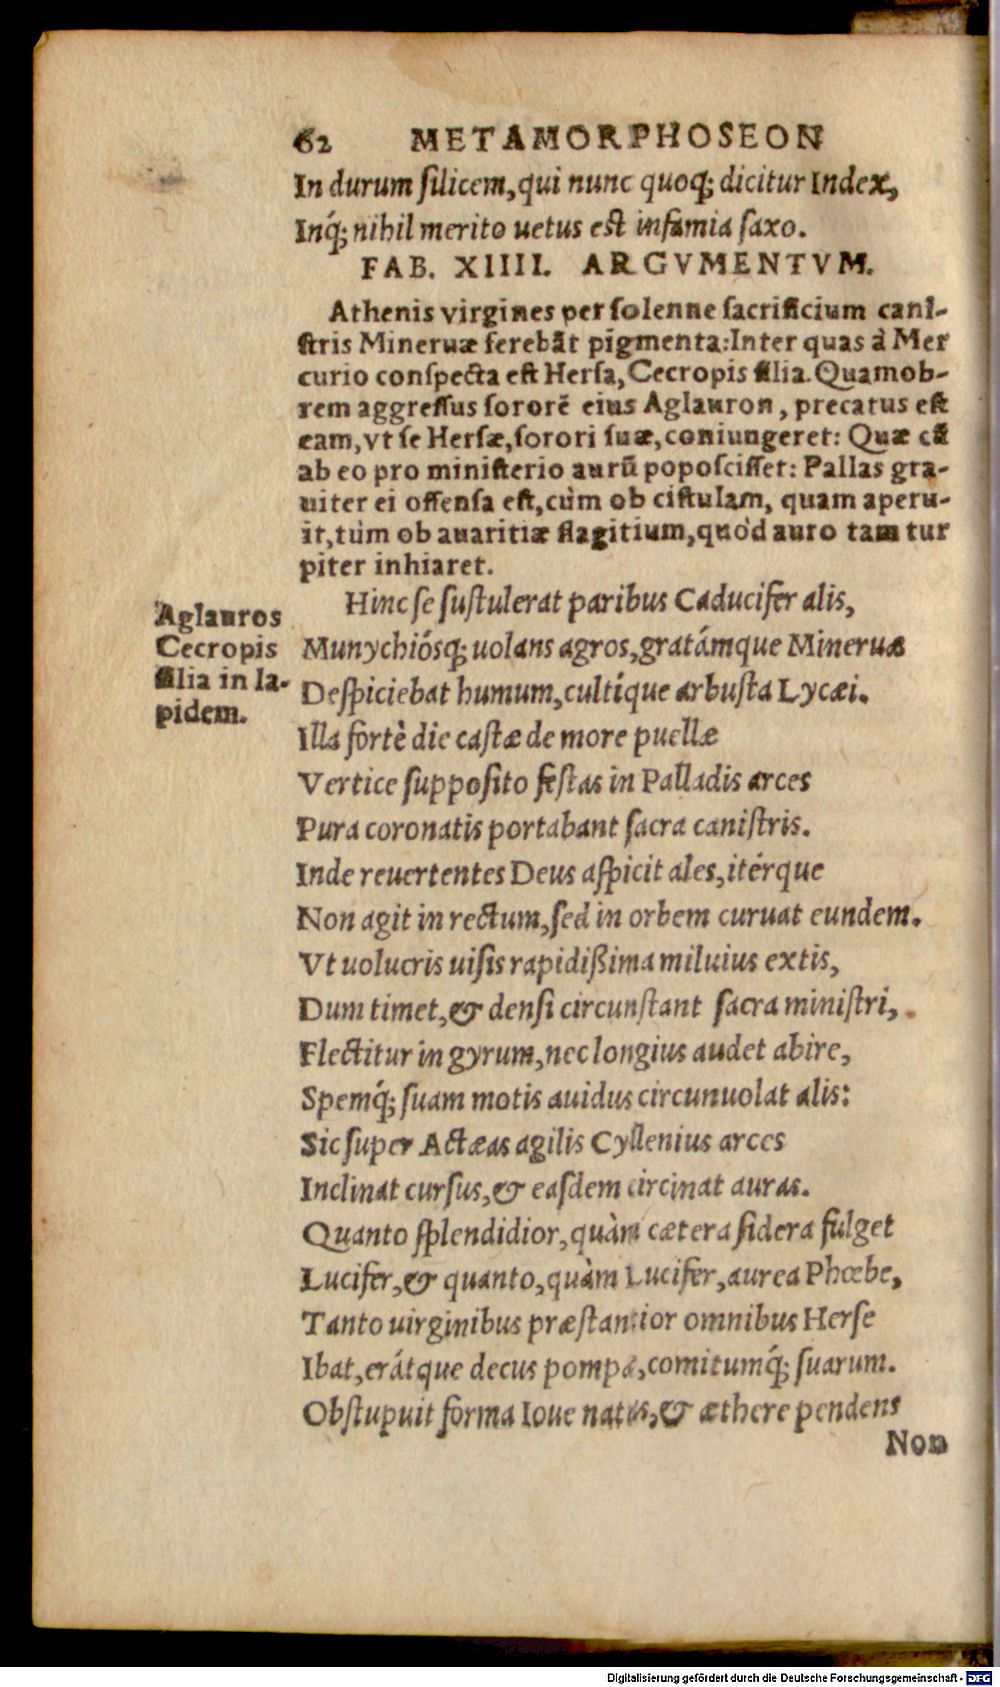 62 METAMORPHOSEON
In durum ſilicem, qui nunc quoq; dicitur Index,
Inq́; nihil merito uetus eſt infamia ſaxo.
FAB. XIIII. ARGVMENTVM.
Athenis virgines per ſolenne ſacrificium cani-
ſtris Mineruæ ferebãt pigmenta: Inter quas à Mer
curio conſpecta eſt Herſa, Cecropis filia. Quamob-
rem aggreſſus ſororẽ eius Aglauron, precatus eſt
eam, vt ſe Herſæ, ſorori ſuæ, coniungeret: Quæ cũ
ab eo pro miniſterio aurũ popoſciſſet: Pallas gra-
uiter ei offenſa eſt, cùm ob ciſtulam, quam aperu-
it, tùm ob auaritiæ flagitium, quòd auro tam tur
piter inhiaret.
Aglauros
Cecropis
filia in la-
pidem.
Hinc ſe ſuſtulerat paribus Caducifer alis,
Munychiósq; uolans agros, gratámque Mineruæ
Deſpiciebat humum, cultíque arbuſta Lycæi.
Illa fortè die caſtæ de more puellæ
Vertice ſuppoſito feſtas in Palladis arces
Pura coronatis portabant ſacra caniſtris.
Inde reuertentes Deus aſpicit ales, itérque
Non agit in rectum, ſed in orbem curuat eundem.
Vt uolucris uiſis rapidißima miluius extis,
Dum timet, & denſi circunſtant ſacra miniſtri,
Flectitur in gyrum, nec longius audet abire,
Spemq́; ſuam motis auidus circunuolat alis:
Sic ſuper Actæas agilis Cyllenius arces
Inclinat curſus, & eaſdem circinat auras.
Quanto ſplendidior, quàm cætera ſidera fulget
Lucifer, & quanto, quàm Lucifer, aurea Phœbe,
Tanto uirginibus præſtantior omnibus Herſe
Ibat, erátque decus pompæ, comitumq́; ſuarum.
Obſtupuit forma Ioue natus, & æthere pendens
Non
Digitalisierung gefördert durch die Deutsche Forschungsgemeinschaft - DFG